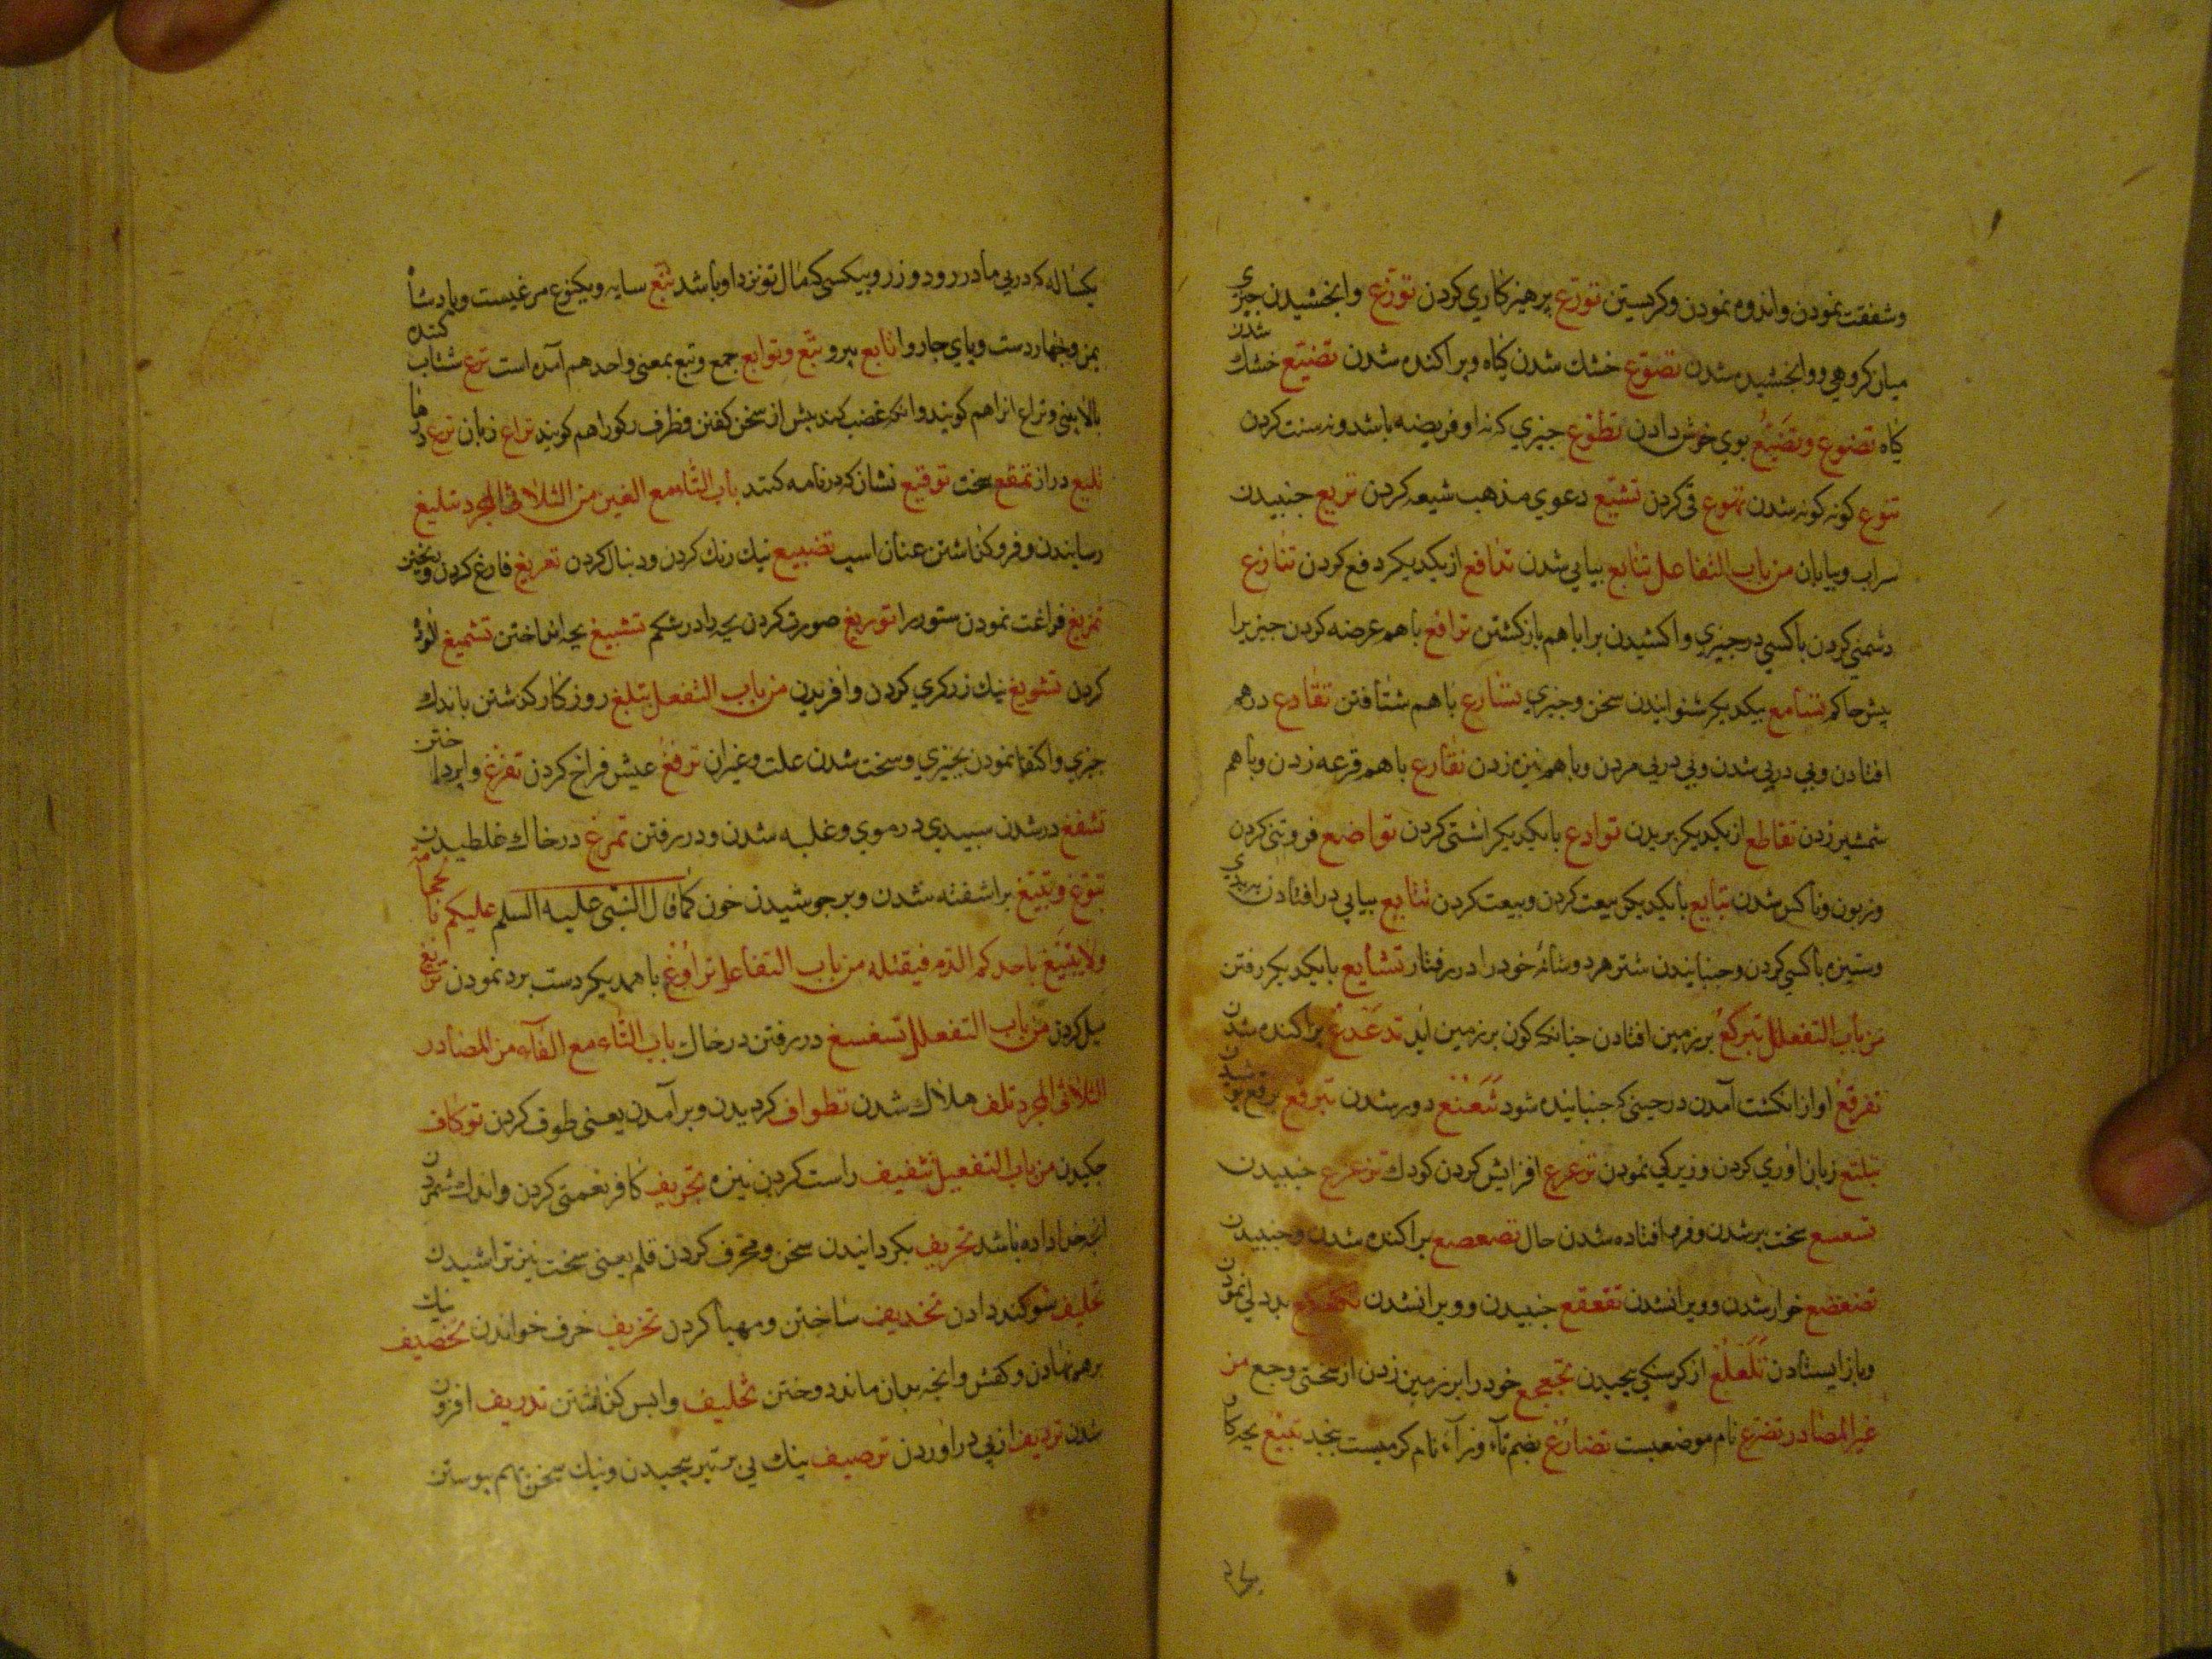 وشفقت نمودن واندوه نمودن وکریستن تورّع پرهیزکاري کردن توزّع وابخشیدن چیزي
میان کروهي ووابخشیده شدن تصوّع خشك شدن کیاه وپراکنده شدن تصیّع خشك شدن
کیاه تضوّع وتضیّع بوي خوش دادن تطوّع چیزي که نه او فریضه باشد ونه سنت کردن
تنوّع کونه کونه شدن تهوّع قي کردن تشیّع دعوي مذهب شیعه کردن تریع جنبیدن
سراب وبیابان من باب التفاعل تتابع بیاپي شدن تدافع از یکدیکر دفع کردن تنازع
دشمني کردن باکسي در چیزي واکشیدن برا باهم بازکشتن ترافع باهم عرضه کردن چیزیرا
پیش حاکم تسامع بیکدیکر شنوانیدن سخن وچیزي تسارع باهم شتافتن تقادع درهم
افتادن وپي درپي شدن وپي درپي مردن وباهم نیزه زدن تقارع باهم قرعه زدن وباهم
شمشیر زدن تقاطع از یکدیکر بریدن توادع با یکدیکر اشتي کردن تواضع فروتني کردن
وزبون وناکس شدن تبایع با یکدیکر بیعت کردن وبیعت کردن تتایع بیاپي درافتادن به بدي
وستیزه باکسي کردن وجنبانیدن شتر هر دو شانهٔ خود را در رفتار تشایع با یکدیکر رفتن
من باب التفعلل تبرکع بر زمین افتادن چنانکه کون بر زمین اید تدعدع پراکنده شدن
تفرقع اواز انکشت آمدن در حیني که جنبانیده شود تنعنع دور شدن تبرقع برقع پوشیدن
تبلتع زبان اوري کردن وزیرکي نمودن ترعرع افزایش کردن کودك تزعزع جنبیدن
تسعسع سخت پیر شدن وفرو افتاده شدن حال تصعصع پراکنده شدن وجنبیدن
تضعضع خوار شدن وویران شدن تقعقع جنبیدن وویران شدن تکعکع بددلي نمودن
وباز ایستادن تلعلع از کرسنکي پیچیدن تجعجع خود را بر زمین زدن از سختي وجع من
غیر المصادر تضرع نام موضعیست تضارع بضم تآء ورآء نام کوهیست بنجد تبیع بچهٔ کاو
یکساله که درپي مادر رود وزر وبیکسي که مال تو نزد او باشد تبّع سایه ویکنوع مرغیست وپادشاه
یمن وچهار دست وپاي چاروا تابع پیرو تبع وتوابع جمع وتبع بمعني واحد هم آمده است ترع شتاب کننده
بالا بیني وتراع انرا هم کویند وانکه غضب کند پیش از سخن کفتن وظرف پر کورا هم کویند تراع زبان ترع دهانها
تلیع دراز تمقع سخت توقیع نشان که در نامه کنند باب التّاء مع الغین من الثلاثي المجرد تبلیغ
رسانیدن وفرو کذاشتن عنان اسپ تصبیغ نیك رنك کردن ودنبال کردن تفریغ فارغ کردن وریختن
تمریغ فراغت نمودن ستور را توریغ صورت کردن بچه را در شکم تسبیغ بچه انداختن تشمیغ الوده
کردن تسویغ نیك زرکري کردن وافریدن من باب التفعل تبلغ روزکار کذشتن باندك
چیزي واکتفا نمودن بچیزي وسخت شدن علت وغیران ترفغ عیش فراخ کردن تفرغ واپرداختن
تشفغ در شدن سپیدي در موي وغلبه شدن ودر رفتن تمرغ در خاك غلطیدن
تبوغ وتبیغ براشفته شدن وبر جوشیدن خون کما قال النبي علیه السلم علیکم بالحجامة
ولا یتبیغ باحدکم الدم فیقتله من باب التفاعل تراوغ باهمدیکر دست برد نمودن تزیغ
میل کردن من باب التفعلل تسغسغ در رفتن در خاك باب التّاء مع الفآء من المصادر
الثلاثي المجرد تلف هلاك شدن تطواف کردیدن وبر آمدن یعني طوف کردن توکاف
چکیدن من باب التفعیل تثقیف راست کردن نیزه تجریف کافر نعمتي کردن واندك شمردن
انچه خدا داده باشد تحریف بکردانیدن سخن ومحرف کردن قلم یعني سخت نیز تراشیدن
تحلیف سوکند دادن تخدیف ساختن ومهیا کردن تخریف خرف خواندن تخصیف نیك
برهم نهادن وکفش وانچه بدان ماند دوختن تخلیف واپس کذاشتن تدریف افزون
شدن تردیف ازپي دراوردن ترصیف نیك پي بر تیر پیچیدن ونیك سخن بهم پیوستن